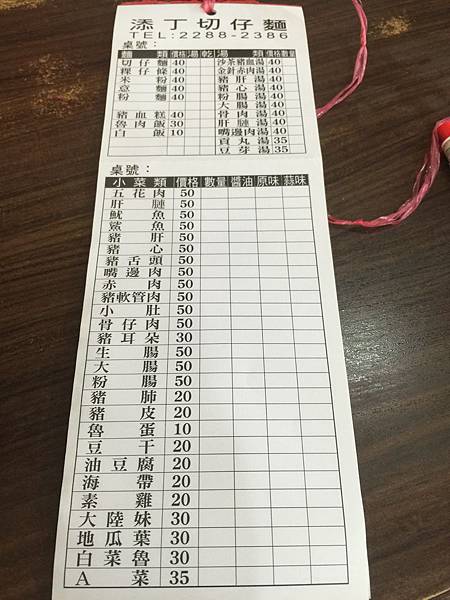 添丁切仔麵
TEL:2288-2386
桌號：
麵 類 價格 湯 乾 湯 類 價格 數量
切仔麵 40 沙茶豬血湯 40
粿仔條 40 金針赤肉湯 40
米粉 40 豬肝湯 40
意麵 40 豬心湯 40
粉麵 40 粉腸湯 40
大腸湯 40
豬血糕 40 骨肉湯 40
魯肉飯 30 肝膁湯 40
白飯 10 嘴邊肉湯 40
貢丸湯 35
豆芽湯 35
桌號：
小菜類 價格 數量 醬油 原味 蒜味
五花肉 50
肝膁 50
魷魚 50
鯊魚 50
豬肝 50
豬心 50
豬舌頭 50
嘴邊肉 50
赤肉 50
豬軟管肉 50
小肚 50
骨仔肉 50
豬耳朵 30
生腸 50
大腸 50
粉腸 50
豬肺 20
豬皮 20
魯蛋 10
豆干 20
油豆腐 20
海帶 20
素雞 20
大陸妹 30
地瓜葉 30
白菜魯 30
A菜 35